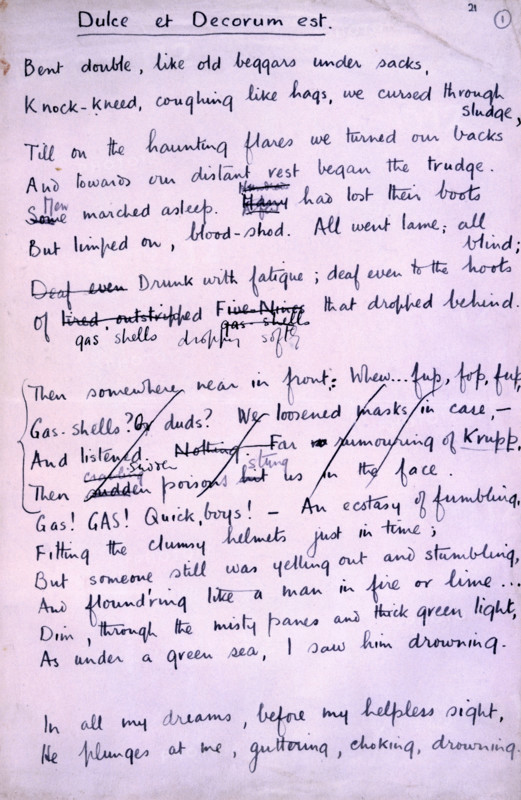 21
1
Dulce et Decorum est.
Bent double, like old beggars under sacks,
Knock-kneed, coughing like hags, we cursed through
sludge,
Till on the haunting flares we turned our backs
And towards our distant rest began the trudge.
Men
Some marched asleep. Many had lost their boots
But limped on, blood-shod. All went lame; all
blind;
Deaf even Drunk with fatigue; deaf even to the hoots
of tired, outstripped Five-Nines that dropped behind.
gas-shells
gas shells dropping softly
Then somewhere near in front: Whew... fup, fop, fup,
Gas-shells? Or duds? We loosened masks in case,—
And listened. Nothing. Far rumouring of Krupp,
Sudden stung
Then sudden poisons hit us in the face.
Gas! GAS! Quick, boys! — An ecstasy of fumbling,
Fitting the clumsy helmets just in time;
But someone still was yelling out and stumbling,
And flound'ring like a man in fire or lime...
Dim, through the misty panes and thick green light,
As under a green sea, I saw him drowning.
In all my dreams, before my helpless sight,
He plunges at me, guttering, choking, drowning.